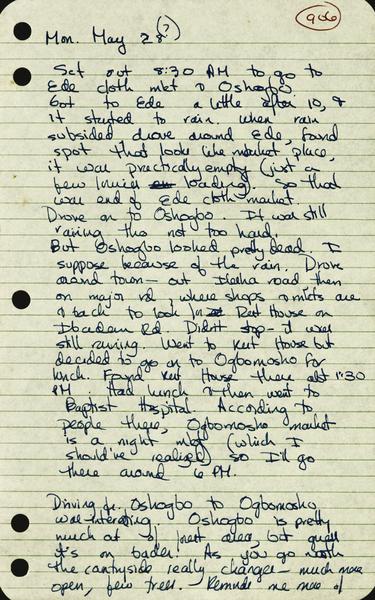 906
Mon. May 28(?)
Set out 8:30 AM to go to
Ede cloth mkt & Oshogbo
Got to Ede a little after 10, &
it started to rain. When rain
subsided drove around Ede, found
spot that looks like market place,
it was practically empty (just a
few lorries loading). So that
was end of Ede cloth market.
Drove on to Oshogbo. It was still
raining tho not too hard.
But Oshogbo looked pretty dead. I
suppose because of the rain. Drove
around town – out Ilesha road then
on major rd, where shops & mkts are
& back to look for Rest House on
Ibadan Rd. Didn't stop – it was
still raining. Went to Rest House but
decided to go on to Ogbomosho for
lunch. Found Rest House there abt 1:30
PM. Had lunch & then went to
Baptist Hospital. According to
people there, Ogbomosho market
is a night mkt (which I
should've realized) so I'll go
there around 6 PM.
Driving fr. Oshogbo to Ogbomosho
was interesting. Oshogbo is pretty
much at forest area, but
it's on border. As you go north
the countryside really changes – much more
open, few trees. Reminds me more of